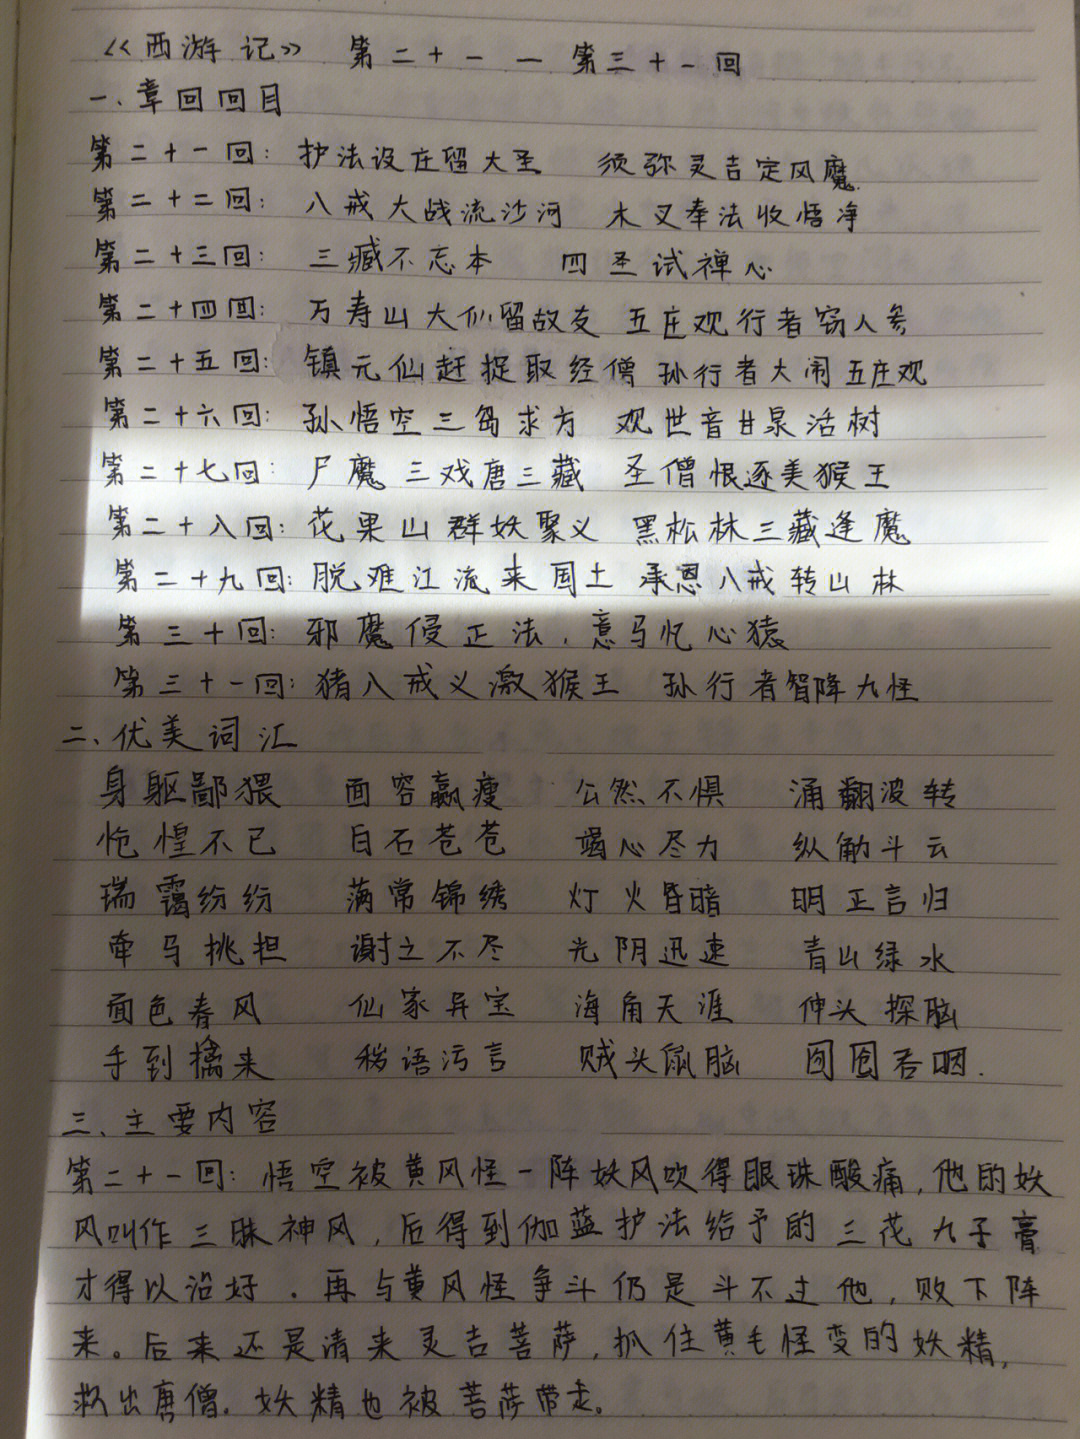 《西游记》 第二十一 — 第三十一回
一、章回回目
第二十一回: 护法设庄留大圣 须弥灵吉定风魔.
第二十二回: 八戒大战流沙河 木叉奉法收悟净
第二十三回: 三藏不忘本 四圣试禅心
第二十四回: 万寿山大仙留故友 五庄观行者窃人参
第二十五回: 镇元仙赶捉取经僧 孙行者大闹五庄观
第二十六回: 孙悟空三岛求方 观世音甘泉活树
第二十七回: 尸魔三戏唐三藏 圣僧恨逐美猴王
第二十八回: 花果山群妖聚义 黑松林三藏逢魔
第二十九回: 脱难江流来国土 承恩八戒转山林
第三十回: 邪魔侵正法, 意马忆心猿
第三十一回: 猪八戒义激猴王 孙行者智降九怪
二、优美词汇
身躯鄙猥 面容羸瘦 公然不惧 涌翻波转
怆惶不已 白石苍苍 竭心尽力 纵觔斗云
瑞霭纷纷 满常锦绣 灯火昏暗 明正言归
牵马挑担 谢之不尽 光阴迅速 青山绿水
面色春风 仙家异宝 海角天涯 伸头探脑
手到擒来 秽语污言 贼头鼠脑 囫囵吞咽.
三、主要内容
第二十一回: 悟空被黄风怪一阵妖风吹得眼珠酸痛, 他的妖
风叫作三昧神风, 后得到伽蓝护法给予的三花九子膏
才得以治好. 再与黄风怪争斗仍是斗不过他, 败下阵
来。后来还是请来灵吉菩萨, 抓住黄毛怪变的妖精,
救出唐僧. 妖精也被菩萨带走。